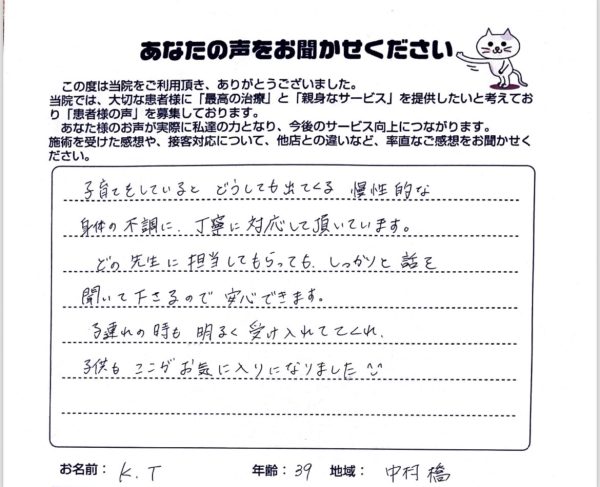 あなたの声をお聞かせください
この度は当院をご利用頂き、ありがとうございました。
当院では、大切な患者様に「最高の治療」と「親身なサービス」を提供したいと考えてお
り「患者様の声」を募集しております。
あなた様のお声が実際に私達の力となり、今後のサービス向上につながります。
施術を受けた感想や、接客対応について、他店との違いなど、率直なご感想をお聞かせく
ださい。
子育てをしていると どうしても出てくる 慢性的な
身体の不調に、丁寧に対応して頂いています。
どの先生に担当してもらっても、しっかりと話を
聞いて下さるので安心できます。
子連れの時も明るく受け入れててくれ、
子供もここがお気に入りになりました
お名前： K.T 年齢：39 地域： 中村橋